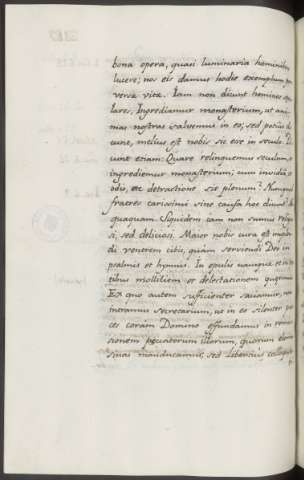 bona opera, quasi luminaria hominibus
lucere; nos eis damus hodie exemplum per
versæ vitæ. Iam non dicunt homines sæcu
lares, Ingrediamur monasterium, ut ani
mas nostras salvemus in eo; sed potius di
cunt, melius est nobis sic esse in seculo. Di
cunt etiam: Quare relinquemus seculum, et
ingrediemur monasterium; cum invidia,
odio, et detractione sit plenum? Numquid
fratres carissimi sine causa hoc dicunt?
quaquam. Siquidem iam non sumus religio
si, sed deliciosi. Maior nobis cura est implen
di ventrem cibis, quàm serviendi Deo in
psalmis et hymnis. In epulis namque et
tibus mollitiem et delectationem quærimus
Ex quo autem sufficienter satiamur, non
intramus secretarium, ut in eo silenter pre
ces coram Domino effundamus in remis
sionem peccatorum illorum, quorum elemo
sinas manducamus; sed libentius